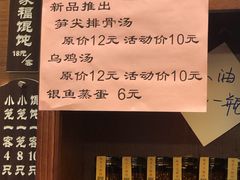 新品推出
笋尖排骨汤
原价12元 活动价10元
乌鸡汤
原价12元 活动价10元
银鱼蒸蛋 6元
家福馄饨
18元/客
小笼一客4只
小笼一客8只
馄饨一客10只
油
一瓶